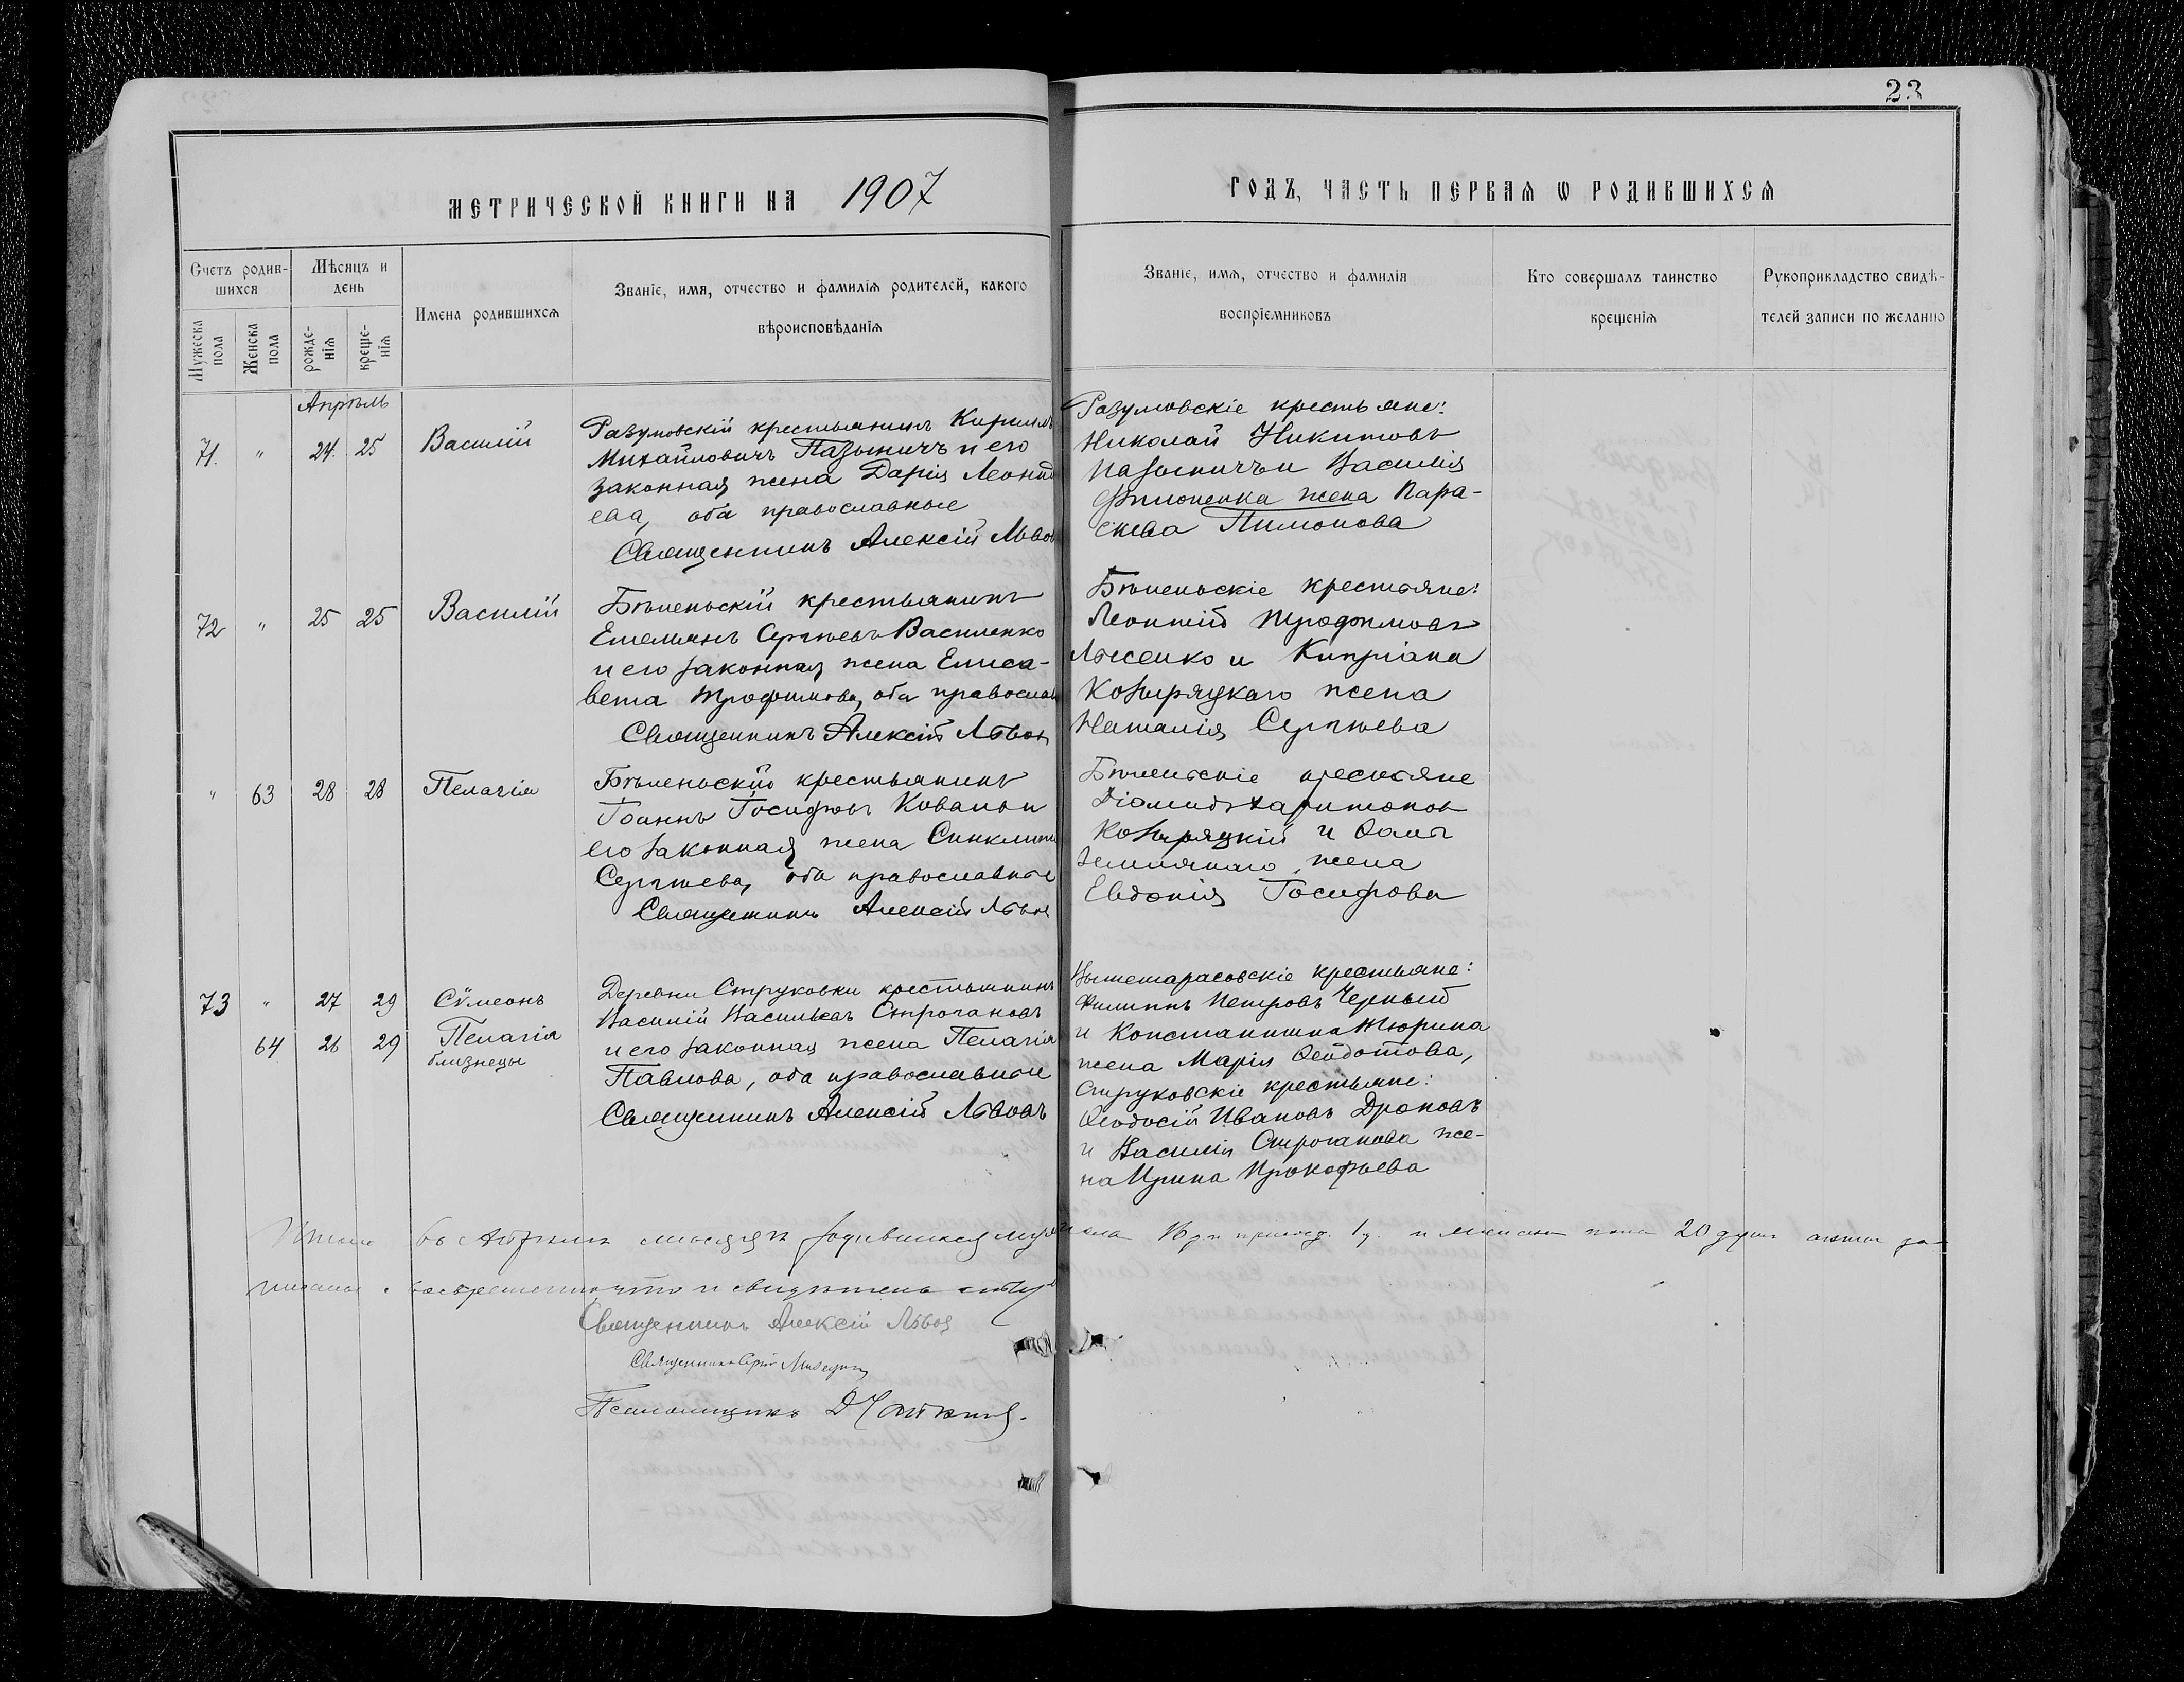 23
МЕТРИЧЕСКОЙ КНИГИ НА 1907
ГОДЪ, ЧАСТЬ ПЕРВАЯ Ѡ РОДИВШИХСЯ
Счетъ родив-
шихся
Мужеска пола
Женска пола
Мѣсяцъ и день
рожде-
нія
креще-
нія
Имена родившихся
Званіе, имя, отчество и фамилія родителей, какого
вѣроисповѣданія
Званіе, имя, отчество и фамилія
воспріемниковъ
Кто совершалъ таинство
крещенія
Рукоприкладство свидѣ-
телей записи по желанію
Апрѣль
71. " 24. 25 Василій
Разумовскій крестьянинъ Кириллъ
Михайловичъ Пазыничъ и его
законная жена Дарія Леонть
ева, оба православные
Священникъ Алексій Львов
Разумовскіе крестьяне:
Николай Никитовъ
Пазыничъ и Василія
Филоненка жена Пара-
скева Пимонова
72 " 25 25 Василій
Бѣленьскій крестьянинъ
Емельянъ Сергѣевъ Василенко
и его законная жена Елиса-
вета Трофимова, оба православ
Священникъ Алексій Львов
Бѣленьскіе крестьяне:
Леонтій Трофимовъ
Лысенко и Кипріана
Козыряцкаго жена
Наталія Сергѣева
" 63 28 28 Пелагія
Бѣленьскій крестьянинъ
Іоаннъ Іосифовъ Коваль и
его законная жена Синклити
Сергѣева, оба православные
Священникъ Алексій Львов
Бѣленьскіе крестьяне
Діомидъ Харитонов
Козыряцкій и Ѳомы
Землянаго жена
Евдокія Іосифова
73 " 27 29 Сѵмеонъ
64 26 29 Пелагія
близнецы
Деревни Струковки крестьянинъ
Василій Васильевъ Строгановъ
и его законная жена Пелагія
Павлова, оба православные
Священникъ Алексій Львовъ
Вышетарасовскіе крестьяне:
Филиппъ Петровъ Черный
и Константина Тюрина
жена Марія Ѳеодотова,
Струковскіе крестьяне:
Ѳеодосій Ивановъ Дроновъ
и Василія Строганова же-
на Ирина Прокофьева
Итого въ Апрѣлѣ мѣсяцѣ родившихся муж пола 1 д. и женска пола 20 душъ акты за-
писаны своевременно что и свидѣтель
Священникъ Алексій Львов
Священникъ
Псаломщикъ